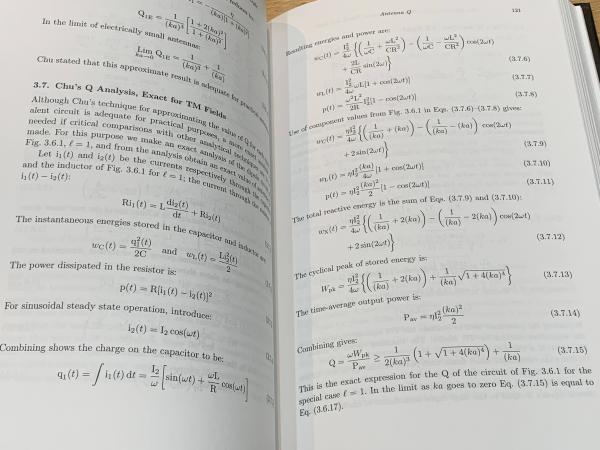 Q₁E = 1/(ka)³ [1 + 2(ka)²]/[1 + (ka)²]
In the limit of electrically small antennas:
Lim ka→0 Q₁E = 1/(ka)³ + 1/(ka)
Chu stated that this approximate result is adequate for practical
3.7. Chu's Q Analysis, Exact for TM Fields
Although Chu's technique for approximating the value of Q
alent circuit is adequate for practical purposes, a more
needed if critical comparisons with other analytical
made. For this purpose we make an exact analysis of the
Fig. 3.6.1, ℓ = 1, and from the analysis obtain an exact value of
Let i₁(t) and i₂(t) be the currents respectively through the
and the inductor of Fig. 3.6.1 for ℓ = 1; the current through the
i₁(t) − i₂(t):
Ri₁(t) = L di₂(t)/dt + Ri₂(t)
The instantaneous energies stored in the capacitor and inductor are
w_C(t) = q₁²(t)/2C and w_L(t) = Li₂²(t)/2
The power dissipated in the resistor is:
p(t) = R[i₁(t) − i₂(t)]²
For sinusoidal steady state operation, introduce:
i₂(t) = I₂ cos(ωt)
Combining shows the charge on the capacitor to be:
q₁(t) = ∫ i₁(t) dt = I₂/ω [sin(ωt) + ωL/R cos(ωt)]
Antenna Q 121
Resulting energies and power are:
w_C(t) = I₂²/4ω {(1/ωC + ωL²/CR²) − (1/ωC − ωL²/CR²) cos(2ωt)
+ 2L/CR sin(2ωt)} (3.7.6)
w_L(t) = I₂²/4ω ωL[1 + cos(2ωt)] (3.7.7)
p(t) = ω²L²/2R I₂²[1 − cos(2ωt)] (3.7.8)
Use of component values from Fig. 3.6.1 in Eqs. (3.7.6)–(3.7.8) gives:
w_C(t) = ηI₂²/4ω {(1/(ka) + (ka)) − (1/(ka) − (ka)) cos(2ωt)
+ 2 sin(2ωt)} (3.7.9)
w_L(t) = ηI₂² (ka)/4ω [1 + cos(2ωt)] (3.7.10)
p(t) = ηI₂² (ka)²/2 [1 − cos(2ωt)] (3.7.11)
The total reactive energy is the sum of Eqs. (3.7.9) and (3.7.10):
w_X(t) = ηI₂²/4ω {(1/(ka) + 2(ka)) − (1/(ka) − 2(ka)) cos(2ωt)
+ 2 sin(2ωt)} (3.7.12)
The cyclical peak of stored energy is:
W_pk = ηI₂²/4ω {(1/(ka) + 2(ka)) + 1/(ka) √1 + 4(ka)⁴} (3.7.13)
The time-average output power is:
P_av = ηI₂² (ka)²/2 (3.7.14)
Combining gives:
Q = ωW_pk/P_av ≥ 1/2(ka)³ (1 + √1 + 4(ka)⁴) + 1/(ka) (3.7.15)
This is the exact expression for the Q of the circuit of Fig. 3.6.1 for the
special case ℓ = 1. In the limit as ka goes to zero Eq. (3.7.15) is equal to
Eq. (3.6.17).